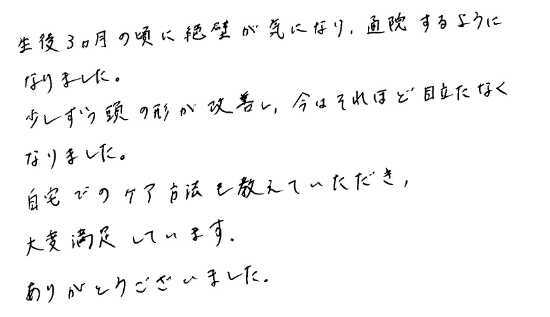 生後3ヵ月の頃に絶壁が気になり,通院するように
なりました。
少しずつ頭の形が改善し,今はそれほど目立たなく
なりました。
自宅でのケア方法も教えていただき,
大変満足しています.
ありがとうございました.